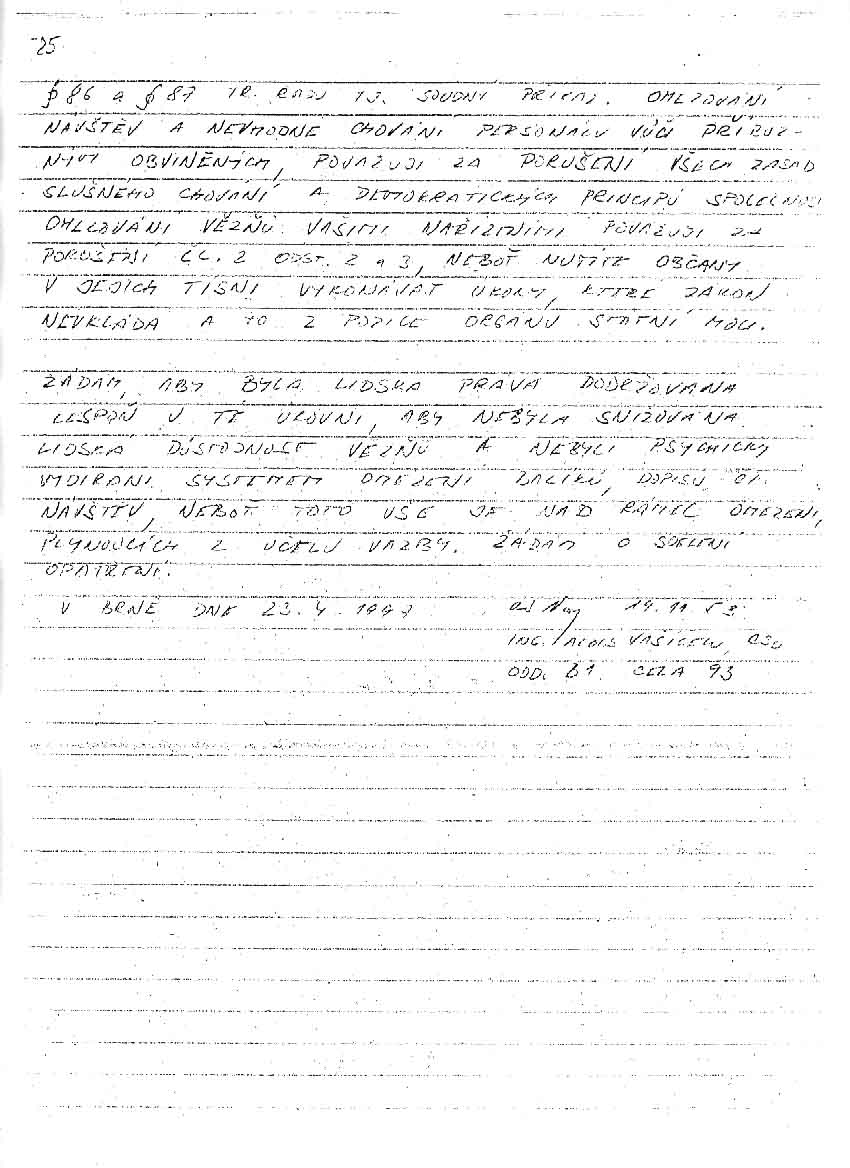 25
§ 86 a § 87 TR. ŘÁDU TJ. SOUDNÝ PŘÍKAZ. OMEZOVÁNÍ
NÁVŠTĚV A NEVHODNÉ CHOVÁNÍ PERSONÁLU VŮČI PŘÍBUZ-
NÝM OBVINĚNÝCH, POVAŽUJI ZA PORUŠENÍ VŠECH ZÁSAD
SLUŠNÉHO CHOVÁNÍ A DEMOKRATICKÝCH PRINCIPŮ SPOLEČNOSTI
OMEZOVÁNÍ VĚZŇŮ VAŠIMI NAŘÍZENÍMI POVAŽUJI ZA
PORUŠENÍ ČL. 2 ODST. 2 a 3, NEBOŤ NUTÍTE OBČANY
V JEJICH TÍSNI VYKONÁVAT ÚKONY, KTERÉ ZÁKON
NEVKLÁDÁ A TO Z POZICE ORGÁNU STÁTNÍ MOCI.
ŽÁDÁM, ABY BYLA LIDSKÁ PRÁVA DODRŽOVÁNA
LESPOŇ V TÉ ÚROVNI, ABY NEBYLA SNIŽOVÁNA
LIDSKÁ DŮSTOJNOST VĚZŇŮ A NEBYLI PSYCHICKY
VYDÍRÁNI SYSTÉMEM OMEZENÍ BALÍKŮ, DOPISŮ, ČI
NÁVŠTĚV, NEBOŤ TOTO VŠE JE NAD RÁMEC OMEZENÍ,
PLYNOUCÍCH Z ÚČELU VAZBY. ŽÁDÁM O SDĚLENÍ
OPATŘENÍ.
V BRNĚ DNE 23. 4. 1997 19. 11. 53
ING. ALOIS VAŠÍČEK, CSc
ODD. B1 CELA 93